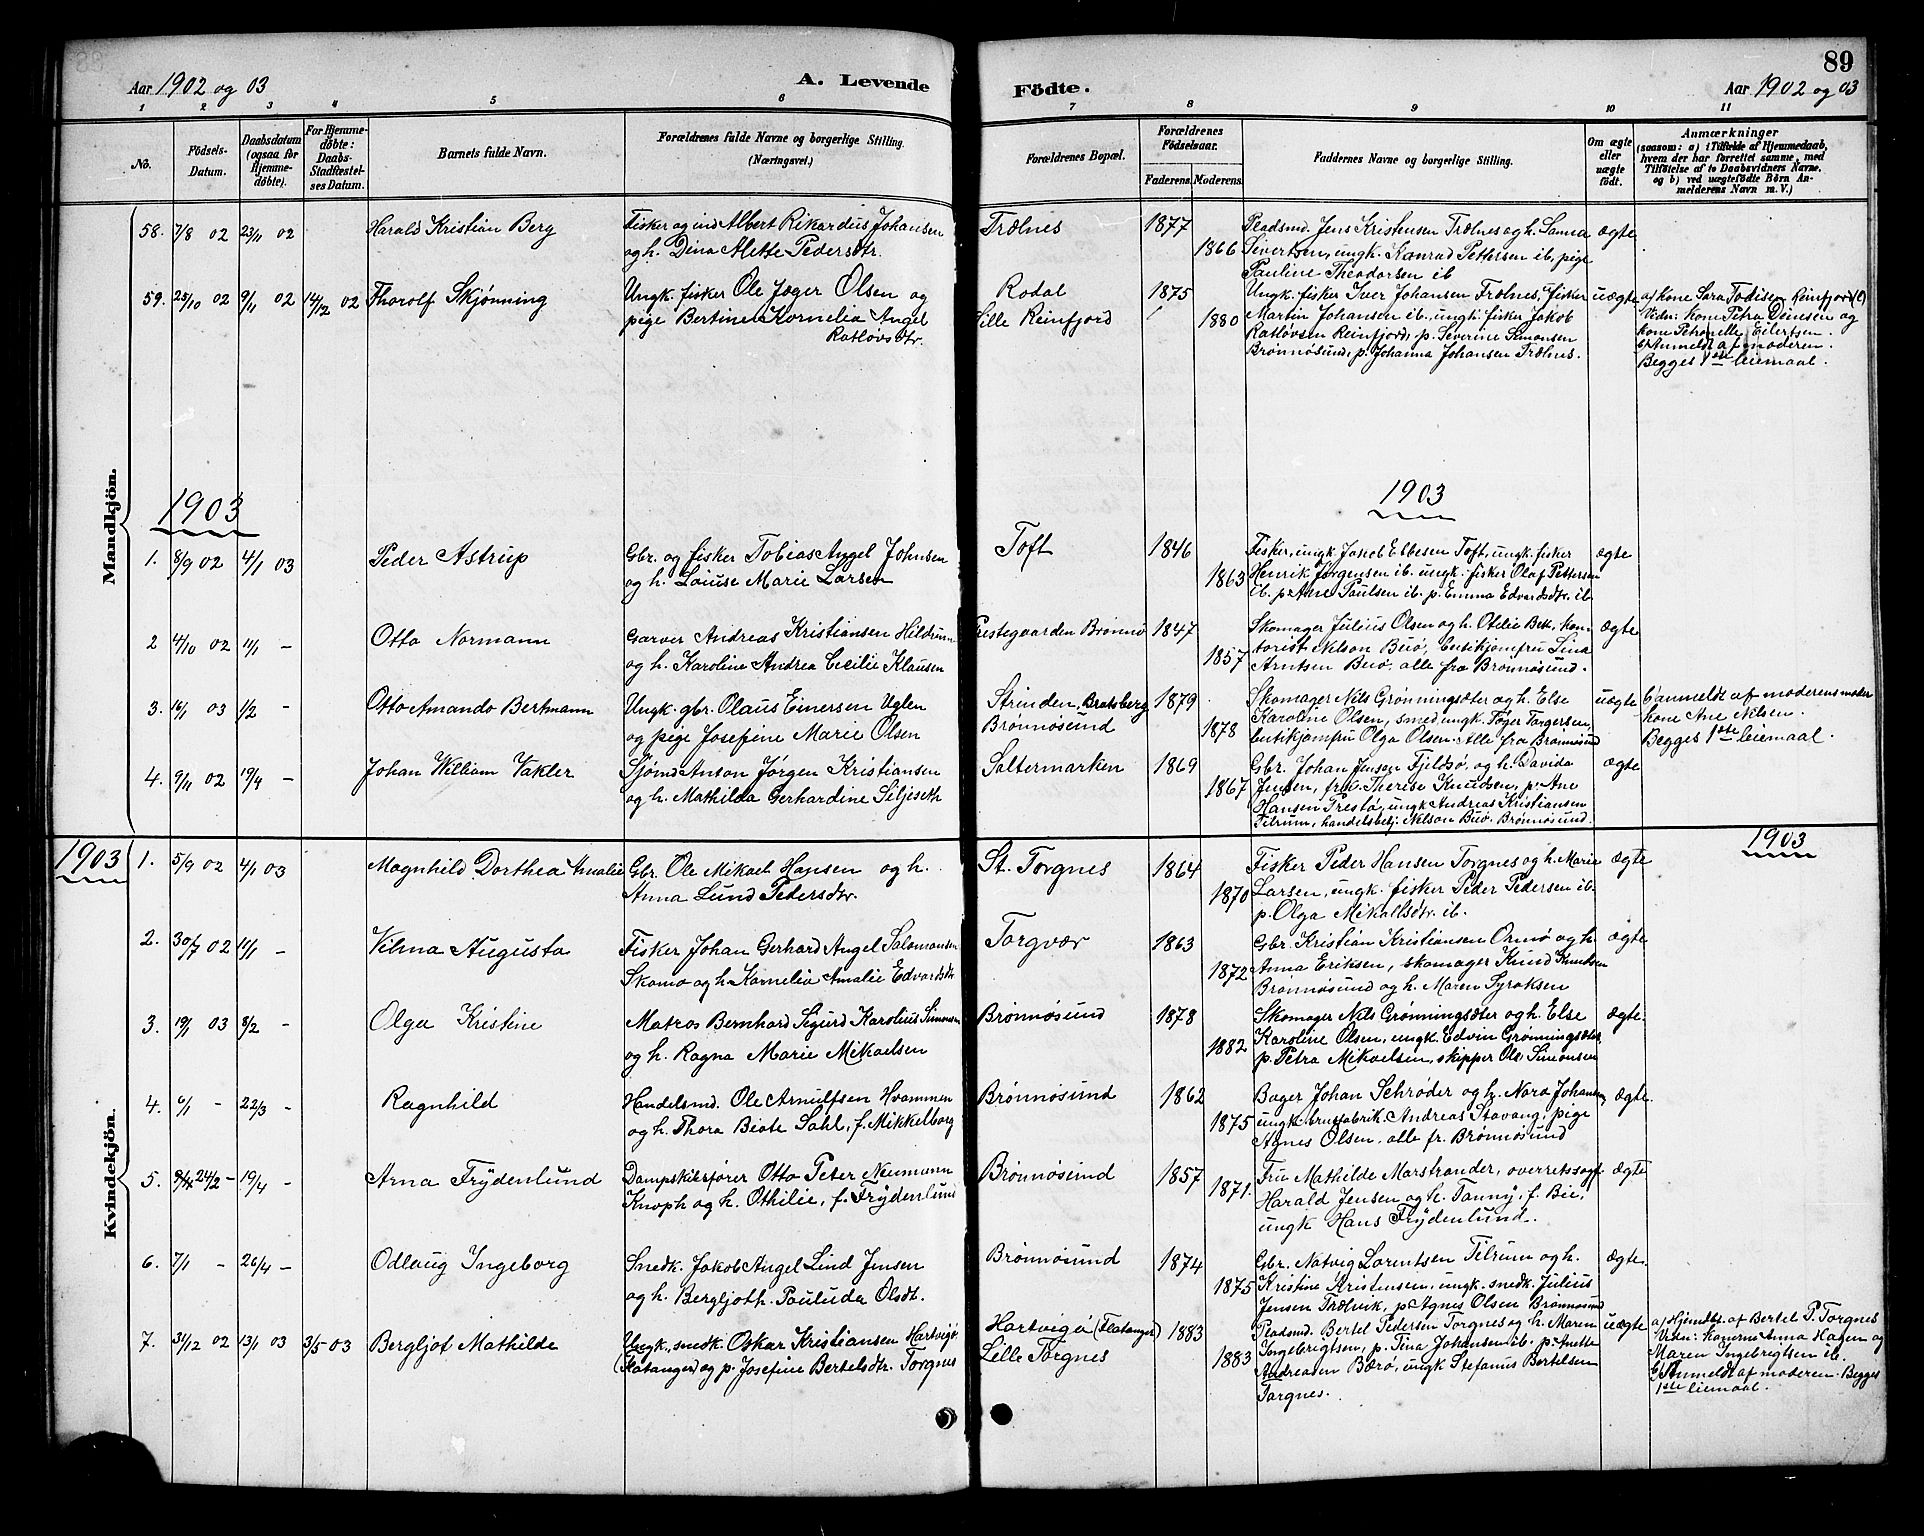 Aar 1902 og 03
A. Levende
Födte.
89
Aar 1902 og 03
1 2 3 4 5 6 7 8 9 10 11
No.
Födsels-
Datum.
Daabsdatum
(ogsaa for
Hjemme-
döbte).
For Hjemme-
döbte:
Daabs-
Stadfæstel-
ses Datum.
Barnets fulde Navn.
Forældrenes fulde Navne og borgerlige Stilling.
(Næringsvei.)
Forældrenes Bopæl.
Forældrenes
Födselsaar.
Faderens. Moderens.
Faddernes Navne og borgerlige Stilling.
Om ægte
eller
uægte
født.
Anmærkninger
(saasom: a) i Tilfælde af Hjemmedaab,
hvem der har forrettet samme, med
Tilföielse af to Daabsvidners Navne,
og b) ved uægtefödte Börn An-
melderens Navn m. V.)
Mandkjön.
58. 7/8 02 23/11 02 Harald Kristian Berg
Fisker og ind Albert Rikardus Johansen
og h. Dina Alette Pedersdtr.
Trælnes 1877 1866
Pladsmd. Jens Kristensen Trælnes og h. Sanna
Sivertsen, ungk. Konrad Pettersen ib, pige
Pauline Theodorsen ib
ægte
59. 25/10 02 9/11 02 14/12 02 Thorolf Skjønning
Ungk. fisker Ole Jæger Olsen og
pige Bertine Kornelia Angel
Ratløvsdtr.
Rodal
Lille Reinfjord
1875 1880
Ungk. fisker Iver Johansen Trælnes, fisker
Martin Johansen ib., ungk. fisker Jakob
Ratløvsen Reinfjord, p. Severine Simonsen
Brønnøsund, p. Johanna Johansen Trælnes.
uægte
a/ Kone Sara Todisen Reinfjord
Vidn: Kone Petra Deinesen og
kone Petronelle Eilertsen.
b/ Anmeldt af moderen.
Begges 1ste leiemaal.
1903
1903
1. 8/9 02 4/1 03 Peder Astrup
Gbr. og fisker Tobias Angel Johnsen
og h. Loiuse Marie Larsen
Toft 1846 1863
Fisker, ungk. Jakob Ebbesen Toft, ungk. fisker
Henrik Jørgensen ib. ungk. fisker Olaf Pettersen
ib. p. Ane Paulsen ib. p. Emma Edvardsdtr. ib.
ægte
2 4/10 02 11/1 - Otto Normann
Garver Andreas Kristiansen Hildrum
og h. Karoline Andrea Cecilie Klausen
Prestegaarden Brønnø 1847 1857
Skomager Julius Olsen og h. Otelie Bett, kon-
torist Nelson Buø, butikjomfru Lina
Arntsen Buø. alle fra Brønnøsund.
ægte
3. 16/1 03 1/2 - Otto Amando Bertmann
Ungk. gbr. Olaus Einersen Uglen
og pige Josefine Marie Olsen
Strinden, Bratsberg
Brønnøsund
1879 1878
Skomager Nils Grønningsæter og h. Else
Karoline Olsen, smed ungk. Tøger Torgersen,
butikjomfru Olga Olsen. alle fra Brønnøsund
uægte
b/ anmeldt af moderens moder
kone Ane Nilsen.
Begges 1ste leiemaal.
4. 9/11 02 19/4 - Johan William Vakler
Sjømd Anton Jørgen Kristiansen
og h. Mathilda Gerhardine Siljeseth
Saltermarken 1869 1867
Gbr. Johan Jensen Fjeldsø, og h. Davida
Jensen, fru Therese Knudsen, p. Ane
Hansen Trestø, ungk Andreas Kristiansen
Tilrum, handelsbetj. Nelson Buø. Brønnøsund.
ægte
1903
1903
Kvindekjön.
1. 5/9 02 4/1 03 Magnhild Dorthea Amalie
Gbr. Ole Mikael Hansen og h.
Anna Lund Pedersdtr.
St. Torgnes 1864 1870
Fisker Peder Hansen Torgnes og h. Marie
Larsen, ungk. fisker Peder Pedersen ib.
p. Olga Mikalsdtr. ib.
ægte
2. 30/7 02 11/1 - Vilma Augusta
Fisker Johan Gerhard Angel Salomonsen
Skomo og h. Kornelia Amalie Edvardsdtr
Torgvær 1863 1872
Gbr. Kristian Kristiansen Ormø og h.
Anna Eriksen, skomager Knud Knudsen
Brønnøsund og h. Maren Syraksen
ægte
3. 19/1 03 8/2 - Olga Kristine
Matros Bernhard Sigurd Karolius Simonsen
og h. Ragna Marie Mikaelsen
Brønnøsund 1878 1882
Skomager Nils Grønningsæter og h. Else
Karoline Olsen, ungk. Edvin Grønningsæter,
p. Petra Mikaelsen, skipper Ole Simonsen
ægte.
4. 6/1 - 22/3 - Ragnhild
Handelsmd. Ole Arnulfsen Hvammen
og h. Thora Beate Sahl, f. Mikkelborg
Brønnøsund 1862 1875
Bager Johan Schrøder og h. Nora Johansen,
ungk. brusfabrik. Andreas Stavang, pige
Agnes Olsen. alle fr. Brønnøsund
ægte.
5. 24/2 - 19/4 - Arna Frydenlund
Dampskibsfører Otto Peter Neumann
Knoph og h. Othilie, f. Frydenlund
Brønnøsund 1857 1871.
Fru Mathilde Marstrander, overretssagf.
Harald Jensen og h. Fanny, f. Bie,
ungk Hans Frydenlund.
ægte
6. 7/1 - 26/4 - Odlaug Ingeborg
Snedk. Jakob Angel Lind Jensen
og h. Bergljoth. Pauluda Olsdt.
Brønnøsund 1874 1875
Gbr. Natvig Lorentsen Tilrum og h.
Kristine Kristensen, ungk. snedk. Julius
Jensen Trælvik, p. Agnes Olsen Brønnøsund
ægte.
7. 31/12 02 13/1 03 3/5 03 Bergljot Mathilde
Ungk. snedk. Oskar Kristiansen Hartvigø
(Flatanger) og p. Josefine Bertelsdtr. Torgnes
Hartvigø (Flatanger)
Lille Torgnes
1883 1883
Pladsmd. Bertel Pedersen Torgnes og h. Maren
Ingebrigtsen, p. Tina Johansen ib. p. Anette
Andreasen Bærø, ungk Stefanus Bertelsen
Torgnes.
uægte
a/ Hjemdbt. af Bertel P. Torgnes
Vidn: konerne Anna Hagen og
Maren Ingebrigtsen ib.
b/ Anmeldt af moderen. Begges
1ste leiemaal.